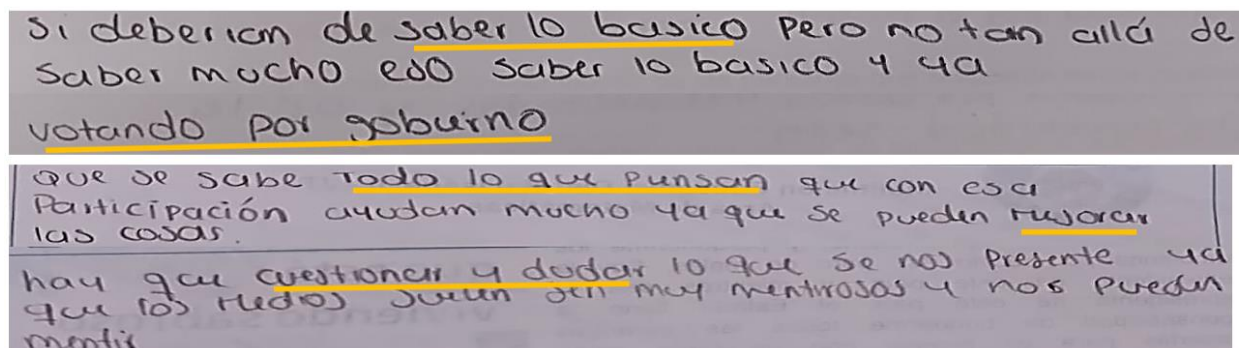 Si deberian de saber lo basico pero no tan allá de
saber mucho eso saber lo basico y ya
votando por gobuirno
Que se sabe Todo lo que punsan que con esa
Participación ayudan mucho ya que se pueden mejorar
las cosas.
hay que cuestionar y dudar lo que se nos Presente ya
que los medios suelen ser muy mentirosos y nos pueden
mentir